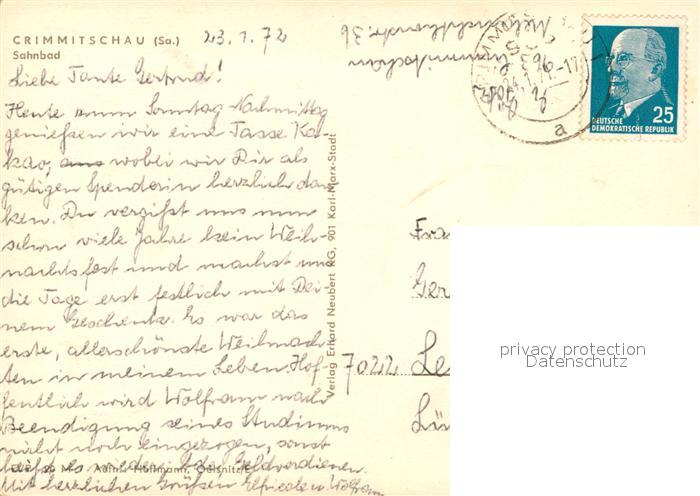 CRIMMITSCHAU (Sa.) 23.1.72
Sahnbad
Liebe Tante Gertrud!
Heute zum Sonntag-Nachmittag
genießen wir eine Tasse Ka-
kao, wobei wir Dir als
gütigen Spenderin herzlich dan
ken. Du vergißt uns nun
schon viele Jahre kein Weih-
nachtsfest und machst uns
die Tage erst festlich mit Dei-
nem Geschenk. Es war das
erste, allerschönste Weihnach-
ten in meinem Leben. Hof-
fentlich wird Wolfram nach
Beendigung seines Studiums
nicht noch eingezogen, sonst
heißt es wieder Geldverdienen.
Mit herzlichen Grüßen Elfriede u. Wolfram
Hoffmann, Oelsnitz/E.
Verlag Erhard Neubert KG, 901 Karl-Marx-Stadt
Crimmitschau
36
a
25
DEUTSCHE
DEMOKRATISCHE REPUBLIK
Fra
Ger
7022 Le
Lü
privacy protection
Datenschutz